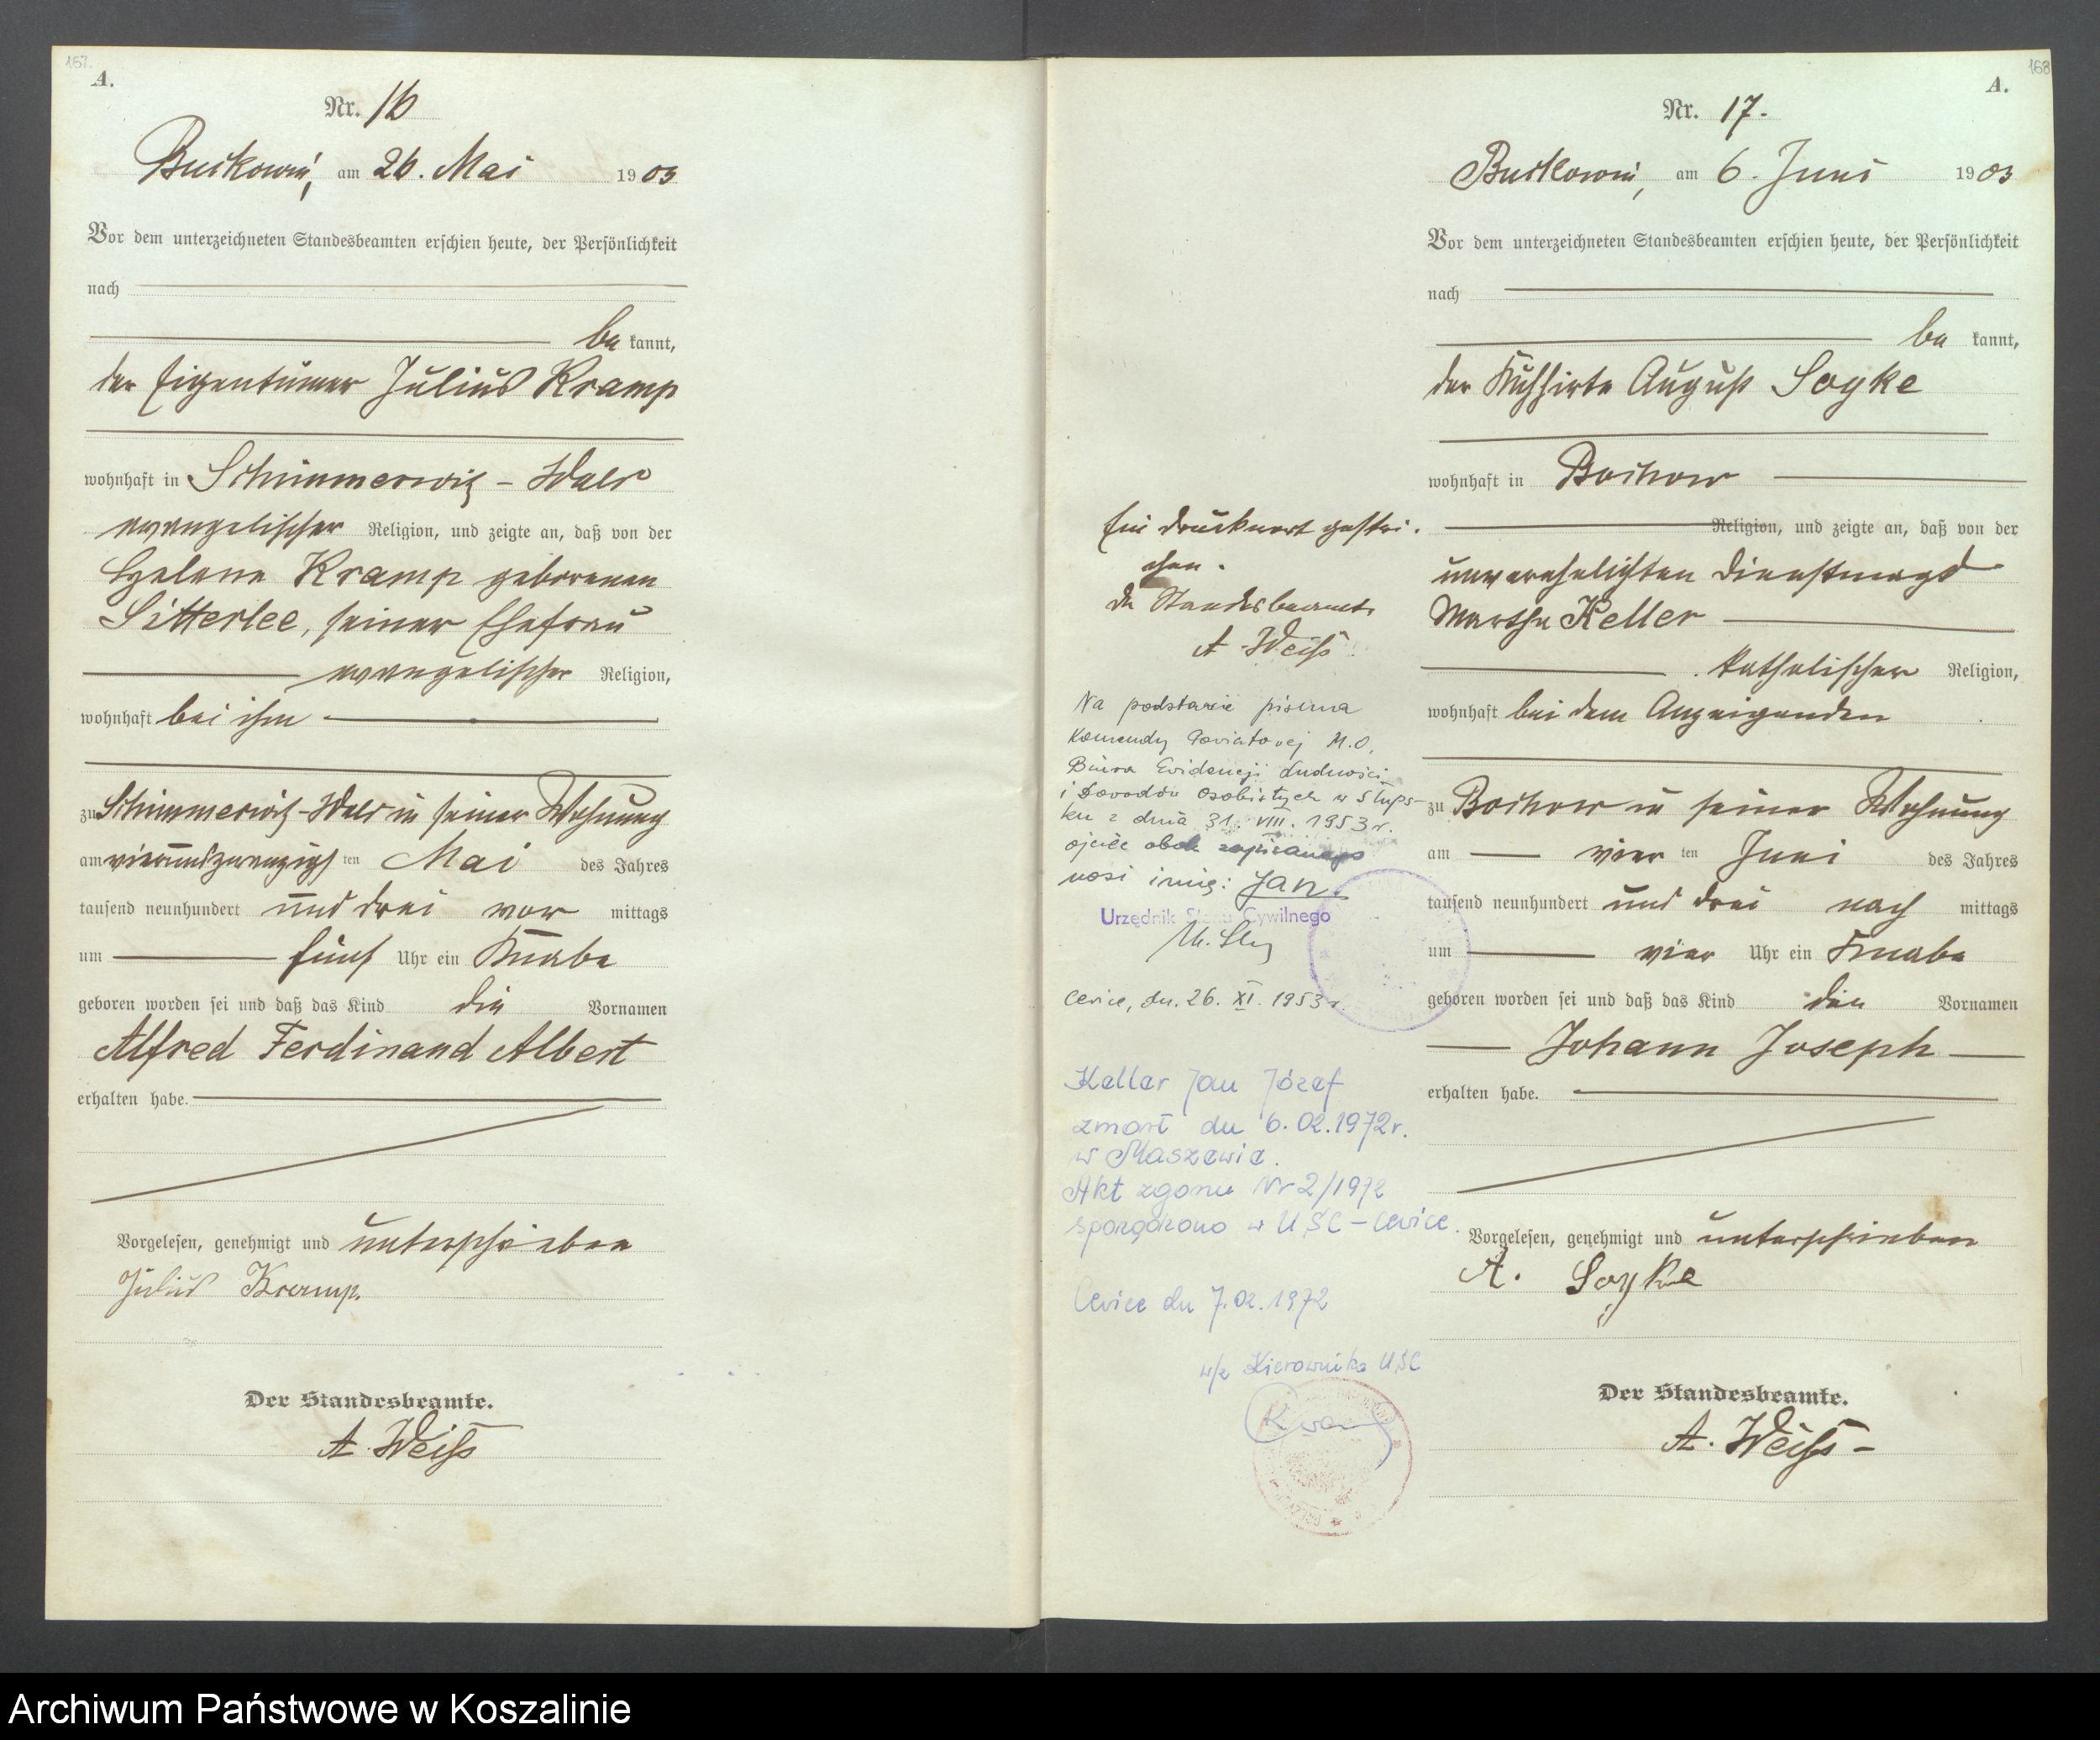 167.
A.
Nr. 16
Buckowin, am 26. Mai 1903
Vor dem unterzeichneten Standesbeamten erschien heute, der Persönlichkeit
nach
be kannt,
der Eigentümer Julius Kramp
wohnhaft in Schimmerwitz - Wald
evangelischer Religion, und zeigte an, daß von der
Helene Kramp geborenen
Litterlee, seiner Ehefrau
evangelischer Religion,
wohnhaft bei ihm
zu Schimmerwitz-Wald in seiner Wohnung
am vierundzwanzigsten Mai des Jahres
tausend neunhundert und drei vor mittags
um fünf Uhr ein Knabe
geboren worden sei und daß das Kind die Vornamen
Alfred Ferdinand Albert
erhalten habe.
Vorgelesen, genehmigt und unterschrieben
Julius Kramp.
Der Standesbeamte.
A. Weiß
168
A.
Nr. 17.
Buckowin, am 6. Juni 1903
Vor dem unterzeichneten Standesbeamten erschien heute, der Persönlichkeit
nach
be kannt,
der Kuhhirte August Soyke
wohnhaft in Bochow
Religion, und zeigte an, daß von der
unverehelichten Dienstmagd
Martha Keller
katholischer Religion,
wohnhaft bei dem Anzeigenden
zu Bochow in seiner Wohnung
am vier ten Juni des Jahres
tausend neunhundert und drei nach mittags
um vier Uhr ein Knabe
geboren worden sei und daß das Kind die Vornamen
Johann Joseph
erhalten habe.
Vorgelesen, genehmigt und unterschrieben
A. Soyke
Der Standesbeamte.
A. Weiß -
Ein Druckwort gestri-
chen.
Der Standesbeamte
A. Weiß
Na podstawie pisma
Komendy Powiatowej M.O.
Biura Ewidencji Ludności
i Dowodów Osobistych w Słups-
ku z dnia 31. VIII. 1953 r.
ojciec obok zapisanego
nosi imię: Jan.
Urzędnik Stanu Cywilnego
Cewice, dn. 26. XI. 1953 r.
Keller Jan Józef
zmarł dn 6.02.1972r.
w Maszewie.
Akt zgonu Nr 2/1972
sporządzono w USC - Cewice.
Cewice dn 7.02.1972
w/z Kierownika USC
Archiwum Państwowe w Koszalinie